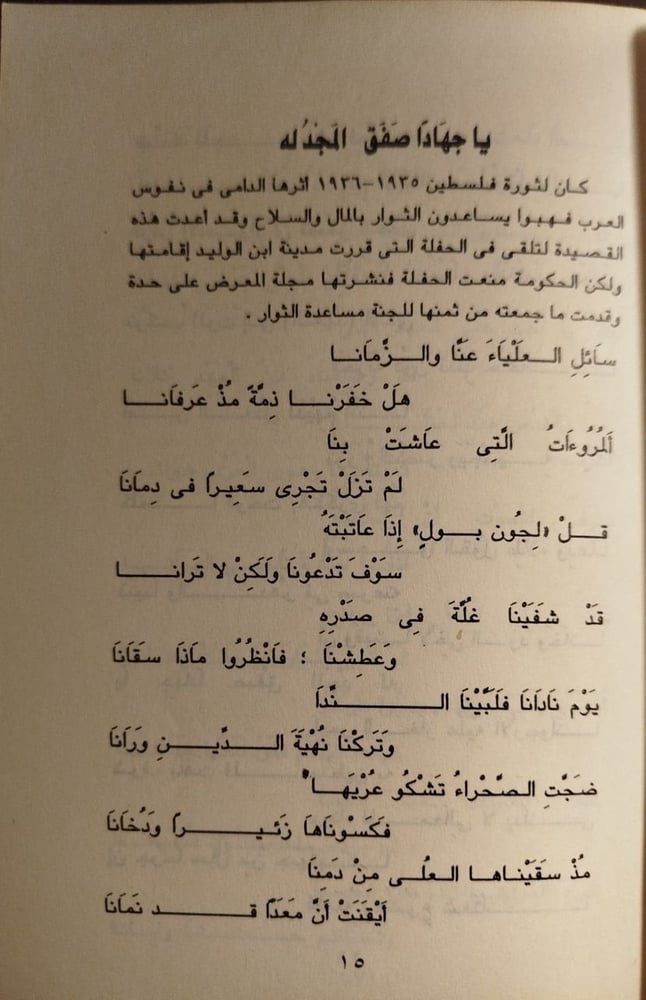 يا جهَادَا صَفَقَ المَجْدُ له
كان لثورة فلسطين ١٩٣٥-١٩٣٦ اثرها الدامى فى نفوس
العرب فهبوا يساعدون الثوار بالمال والسلاح وقد اعدت هذه
القصيدة لتلقى فى الحفلة التى قررت مدينة ابن الوليد إقامتها
ولكن الحكومة منعت الحفلة فنشرتها مجلة المعرض على حدة
وقدمت ما جمعته من ثمنها للجنة مساعدة الثوار .
سَائِلِ العلْيَاَءَ عنَّا والزَّمَانا
هَلْ خفَرْنا ذِمَّةً مذْ عَرفَانا
اَلمُرُوءَاتُ الَّتِى عَاشَتْ بِنَا
لَمْ تَزَلْ تَجْرِى سعَيِراً فى دِمَانَا
قلْ «لِجُون بولٍ» إِذَا عاتَبْتَهُ
سوْفَ تدْعُونَا ولَكِنْ لا تَرانا
قَدْ شفَيْنَا غلُةَّ فِى صدَرْهِ
وَعَطِشْنَا ؛ فَانْظُرُوا مَاذَا سقَانَا
يَوْمَ نَادَانَا فَلَبَّيْنَا النِّدَا
وَتَركْنَا نُهْيَةَ الدَّينِ ورَانَا
ضَجَّتِ الصَّحْراءُ تَشْكُو عُرْيَهَا
فَكَسَوْنَاهَا زَئيراً وَدُخَانَا
مُذْ سقَيْنَاها العلُى مِنْ دَمنِاَ
أَيْقَنَتْ أَنَّ معَدَاً قد نمَانَا
١٥